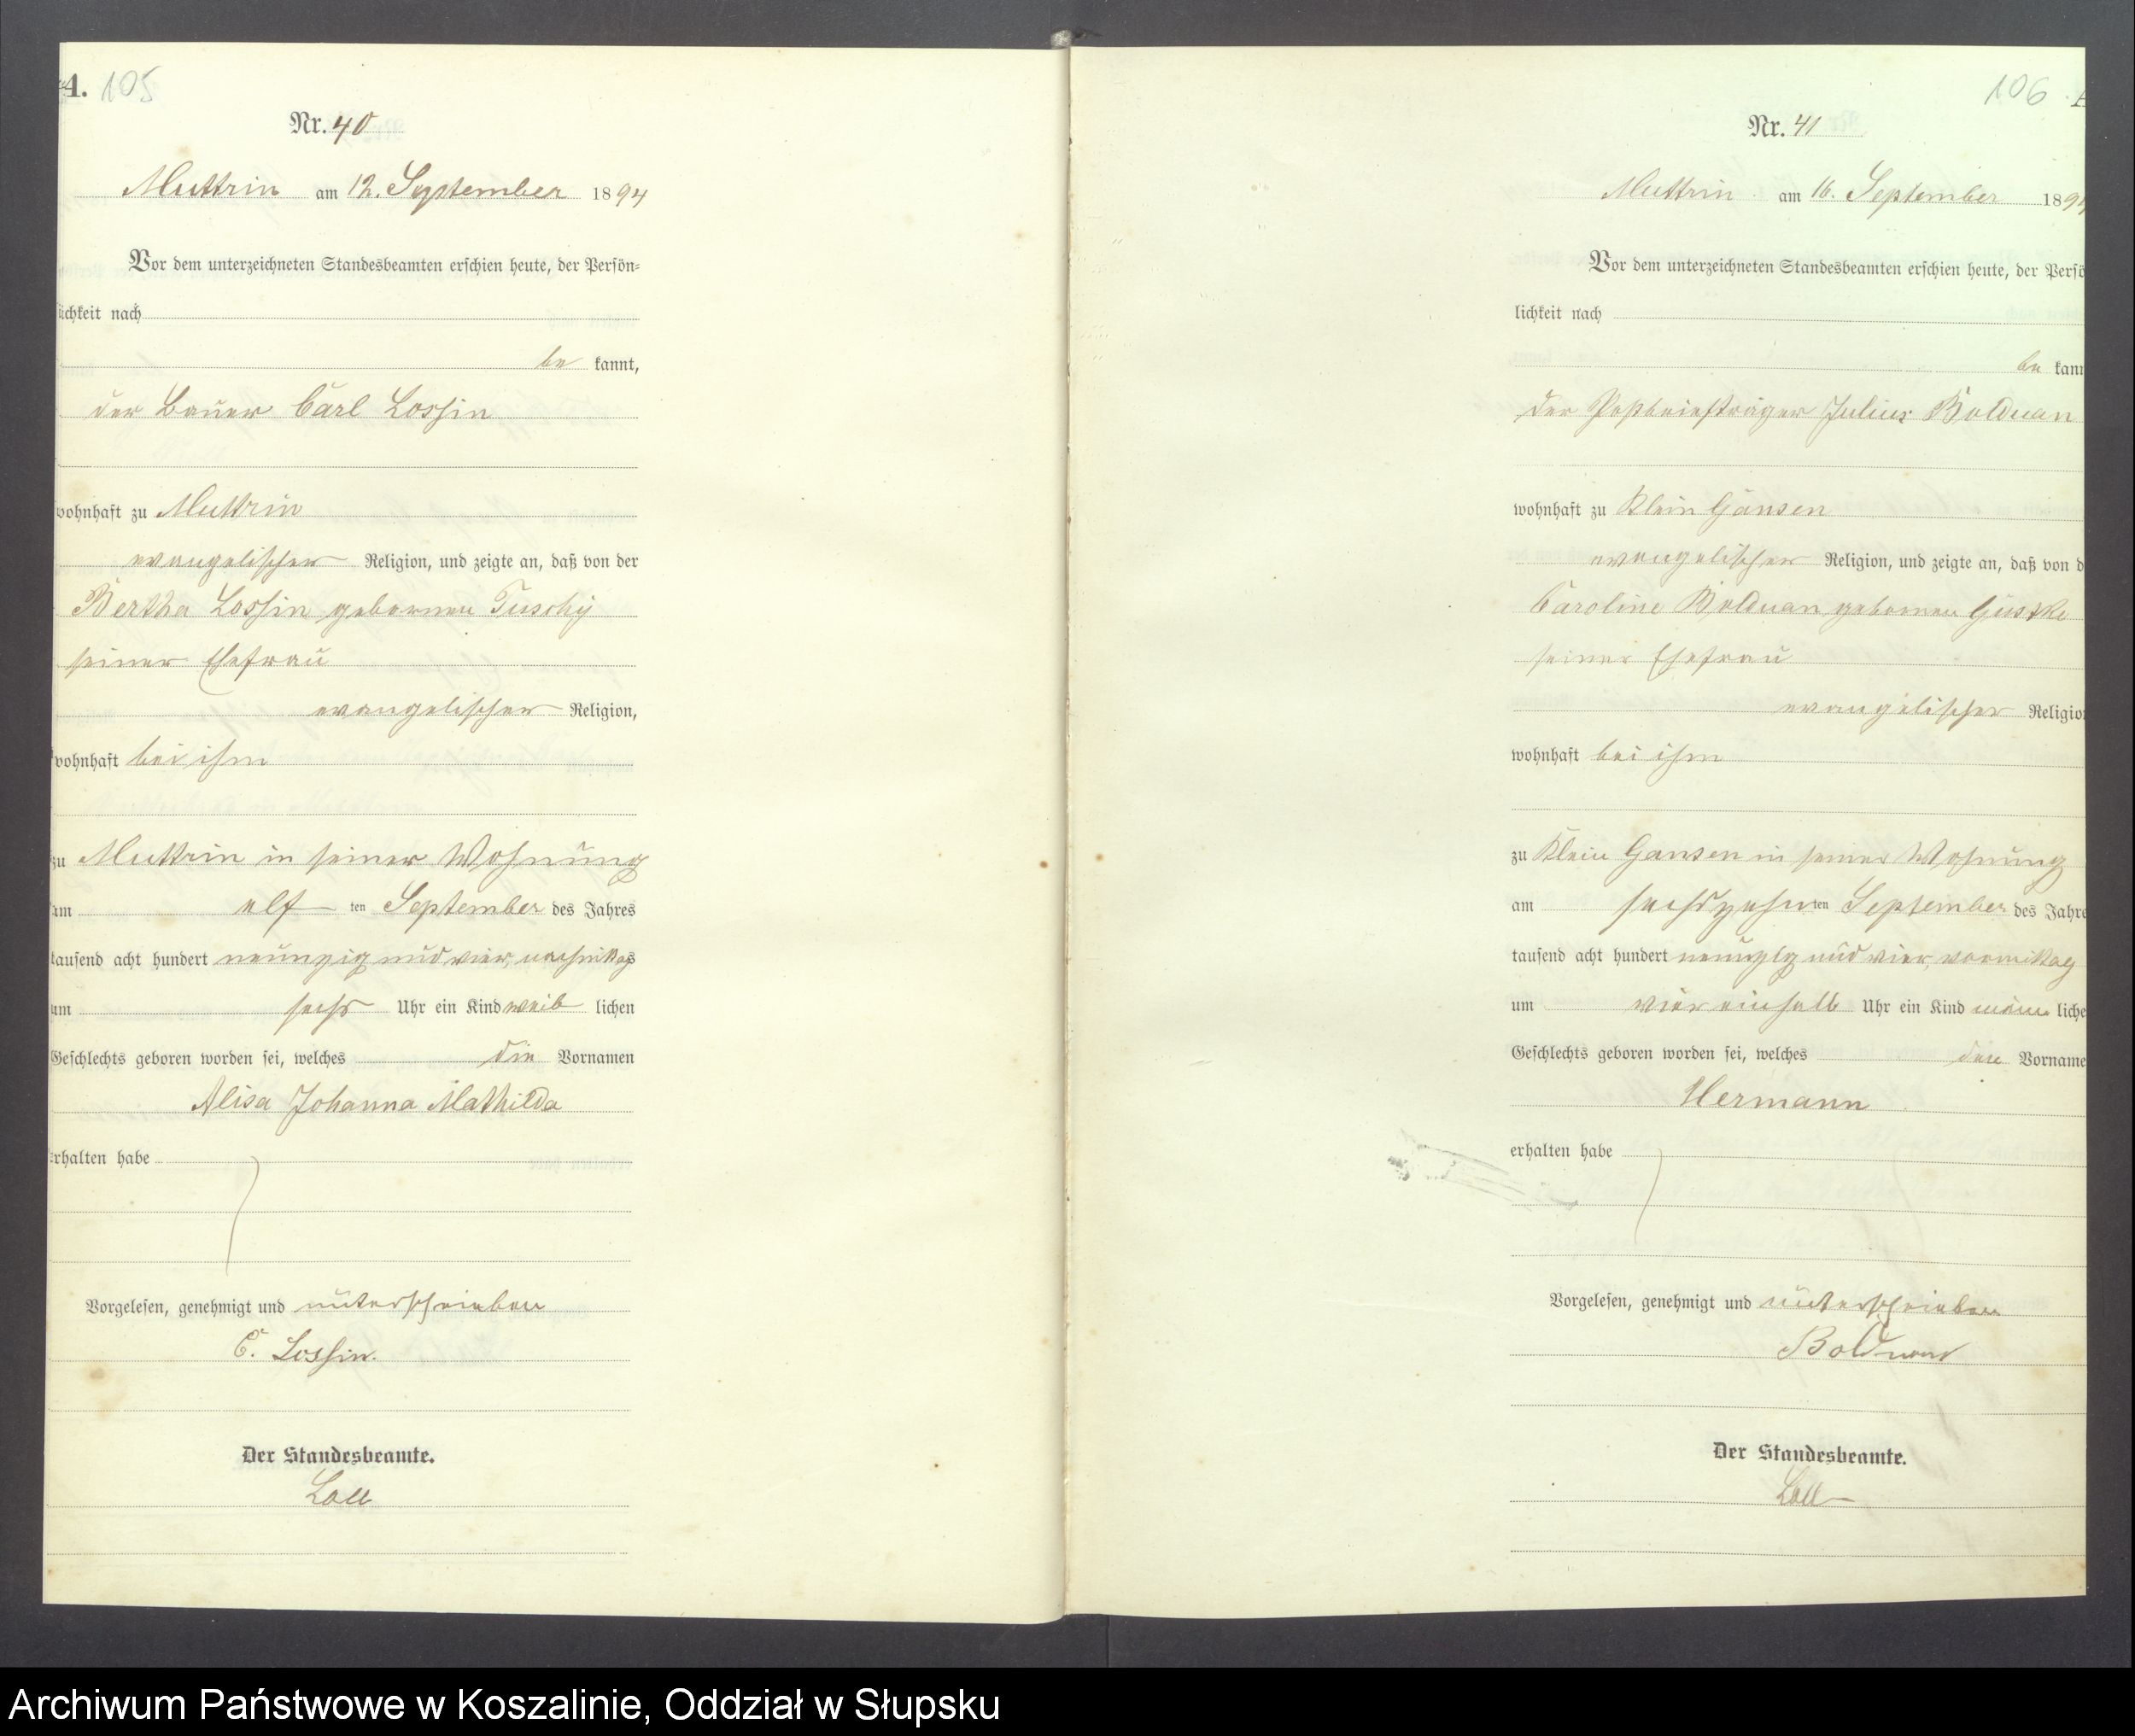 A. 105
Nr. 40
Muttrin am 12. September 1894
Vor dem unterzeichneten Standesbeamten erschien heute, der Persön=
lichkeit nach
be kannt,
der Bauer Carl Lossin
wohnhaft zu Muttrin
evangelischer Religion, und zeigte an, daß von der
Bertha Lossin geborenen Tuschy
seiner Ehefrau
evangelischer Religion,
wohnhaft bei ihm
zu Muttrin in seiner Wohnung
am elf ten September des Jahres
tausend acht hundert neunzig und vier, nachmittags
um sechs Uhr ein Kind weib lichen
Geschlechts geboren worden sei, welches die Vornamen
Alisa Johanna Mathilda
erhalten habe
Vorgelesen, genehmigt und unterschrieben
C. Lossin.
Der Standesbeamte.
Loll
106
Nr. 41
Muttrin am 16. September 1894
Vor dem unterzeichneten Standesbeamten erschien heute, der Persö
lichkeit nach
be kann
der Postbriefträger Julius Bolduan
wohnhaft zu Klein Gansen
evangelischer Religion, und zeigte an, daß von d
Caroline Bolduan geborenen Guske
seiner Ehefrau
evangelischer Religion
wohnhaft bei ihm
zu Klein Gansen in seiner Wohnung
am sechszehn ten September des Jahre
tausend acht hundert neunzig und vier, vormittag
um vier einhalb Uhr ein Kind männ liche
Geschlechts geboren worden sei, welches den Vorname
Hermann
erhalten habe
Vorgelesen, genehmigt und unterschrieben
Bolduan
Der Standesbeamte.
Loll
Archiwum Państwowe w Koszalinie, Oddział w Słupsku